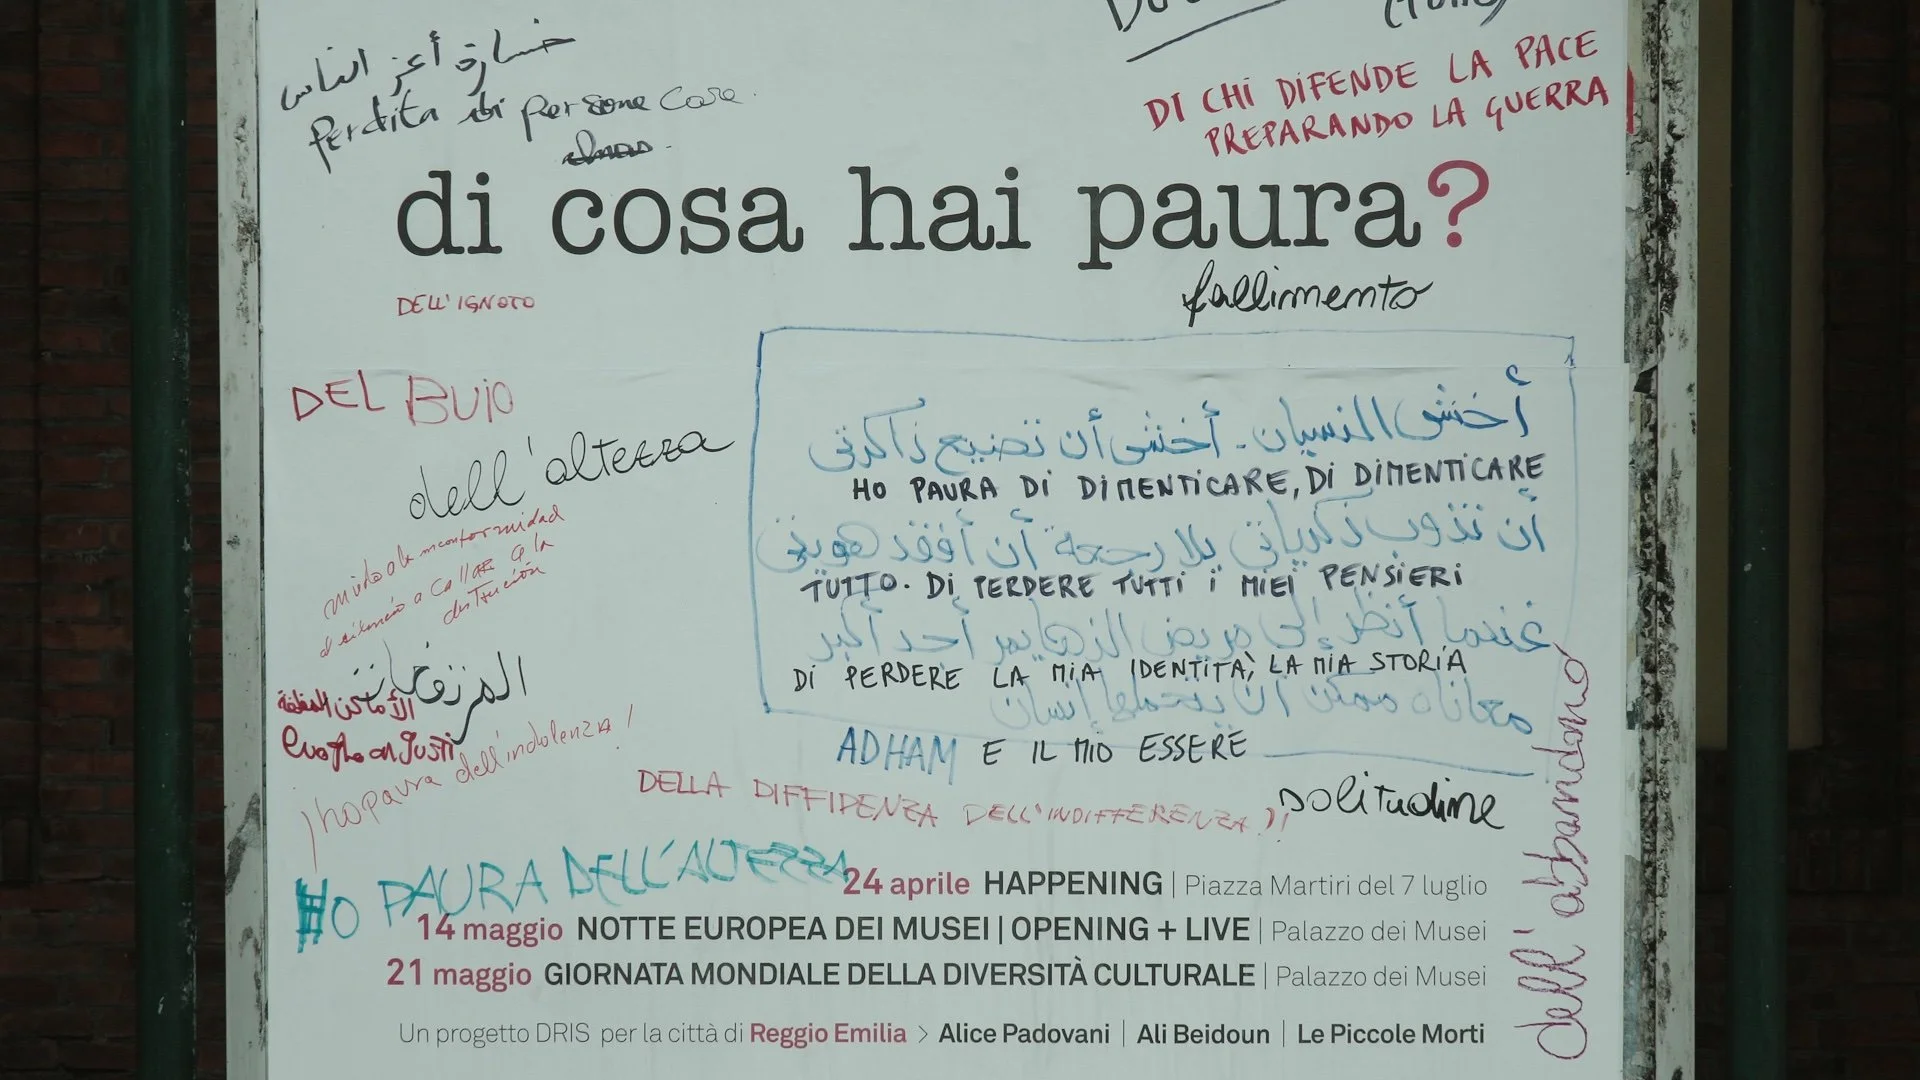 خسارة أعز الناس
Perdita di persone care
DI CHI DIFENDE LA PACE
PREPARANDO LA GUERRA
di cosa hai paura?
DELL'IGNOTO
fallimento
DEL BUIO
dell'altezza
أخشى النسيان. أخشى أن تضيع ذاكرتي
HO PAURA DI DIMENTICARE, DI DIMENTICARE
أن تذوب ذكرياتي بلا رجعة أن أفقد هويتي
TUTTO. DI PERDERE TUTTI I MIEI PENSIERI
عندما أنظر إلى مريض الزهايمر أجد أكبر
DI PERDERE LA MIA IDENTITÀ, LA MIA STORIA
معاناة ممكن أن يتحملها إنسان
ADHAM E IL MIO ESSERE
miedo a la inconformidad
el silencio a callar a la
destrucción
المرتفعات
الأماكن المغلقة
luoghi angusti
ho paura dell'indolenza!
DELLA DIFFIDENZA DELL'INDIFFERENZA?!
solitudine
dell'abbandono
HO PAURA DELL'ALTEZZA
24 aprile HAPPENING | Piazza Martiri del 7 luglio
14 maggio NOTTE EUROPEA DEI MUSEI | OPENING + LIVE | Palazzo dei Musei
21 maggio GIORNATA MONDIALE DELLA DIVERSITÀ CULTURALE | Palazzo dei Musei
Un progetto DRIS per la città di Reggio Emilia > Alice Padovani | Ali Beidoun | Le Piccole Morti